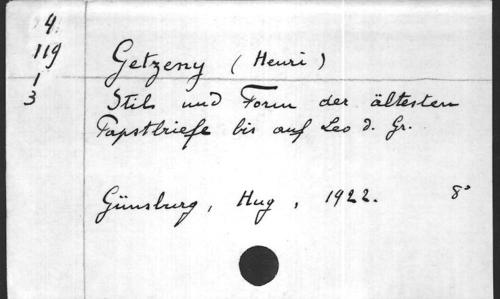 4.
119
1
3
Getzeny (Henri)
Stil und Form der ältesten
Papstbriefe bis auf Leo d. Gr.
Günsburg, Hug, 1922. 8°